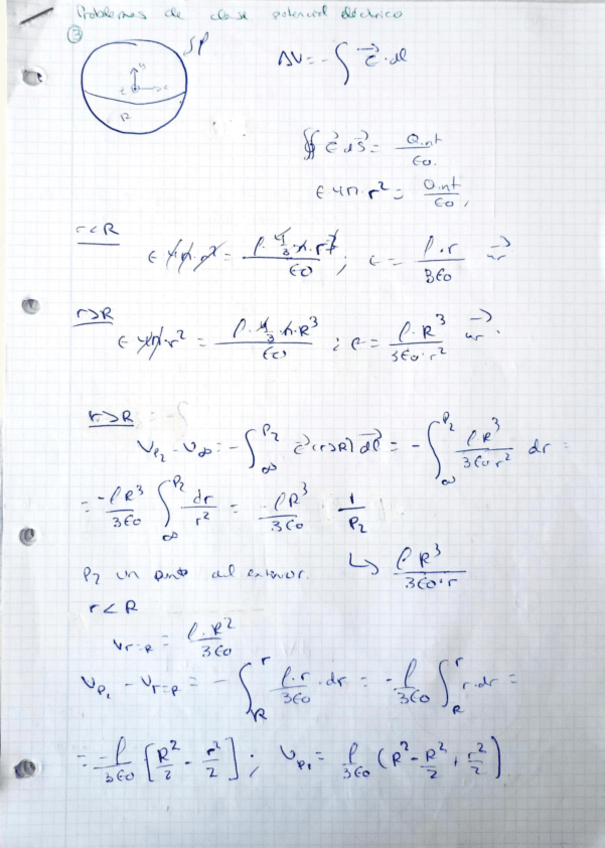 Problemas de clase potencial eléctrico
③ ρ
y z x
R
ΔV = -∫ E⃗ · dl
∯ E⃗ dS⃗ = Qint/ε0.
E 4π · r² = Qint/ε0,
r<R
E 4π · r² = ρ · 4/3 · π · r³ / ε0 ; E = ρ · r / 3ε0 ur⃗
r>R
E 4π · r² = ρ · 4/3 · π · R³ / ε0 ; E = ρ · R³ / 3ε0 · r² ur⃗ .
r>R = -∫
Vp2 - V∞ = -∫∞^P2 E⃗ (r>R) dl⃗ = -∫∞^P2 ρR³ / 3ε0 r² dr =
= -ρR³/3ε0 ∫∞^P2 dr/r² = -ρR³/3ε0 1/P2
P2 un punto del exterior. ↳ ρR³ / 3ε0 · r
r<R
Vr=R = ρ · R² / 3ε0
Vp1 - Vr=R = -∫R^r ρ · r / 3ε0 · dr = -ρ/3ε0 ∫R^r r · dr =
= -ρ/3ε0 [R²/2 - r²/2] ; Vp1 = ρ/3ε0 (R² - R²/2 + r²/2)